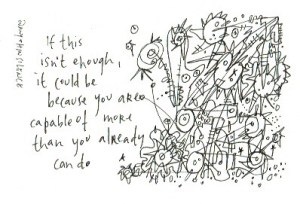 If this
isn't enough,
it could be
because you are
capable of more
than you already
can do